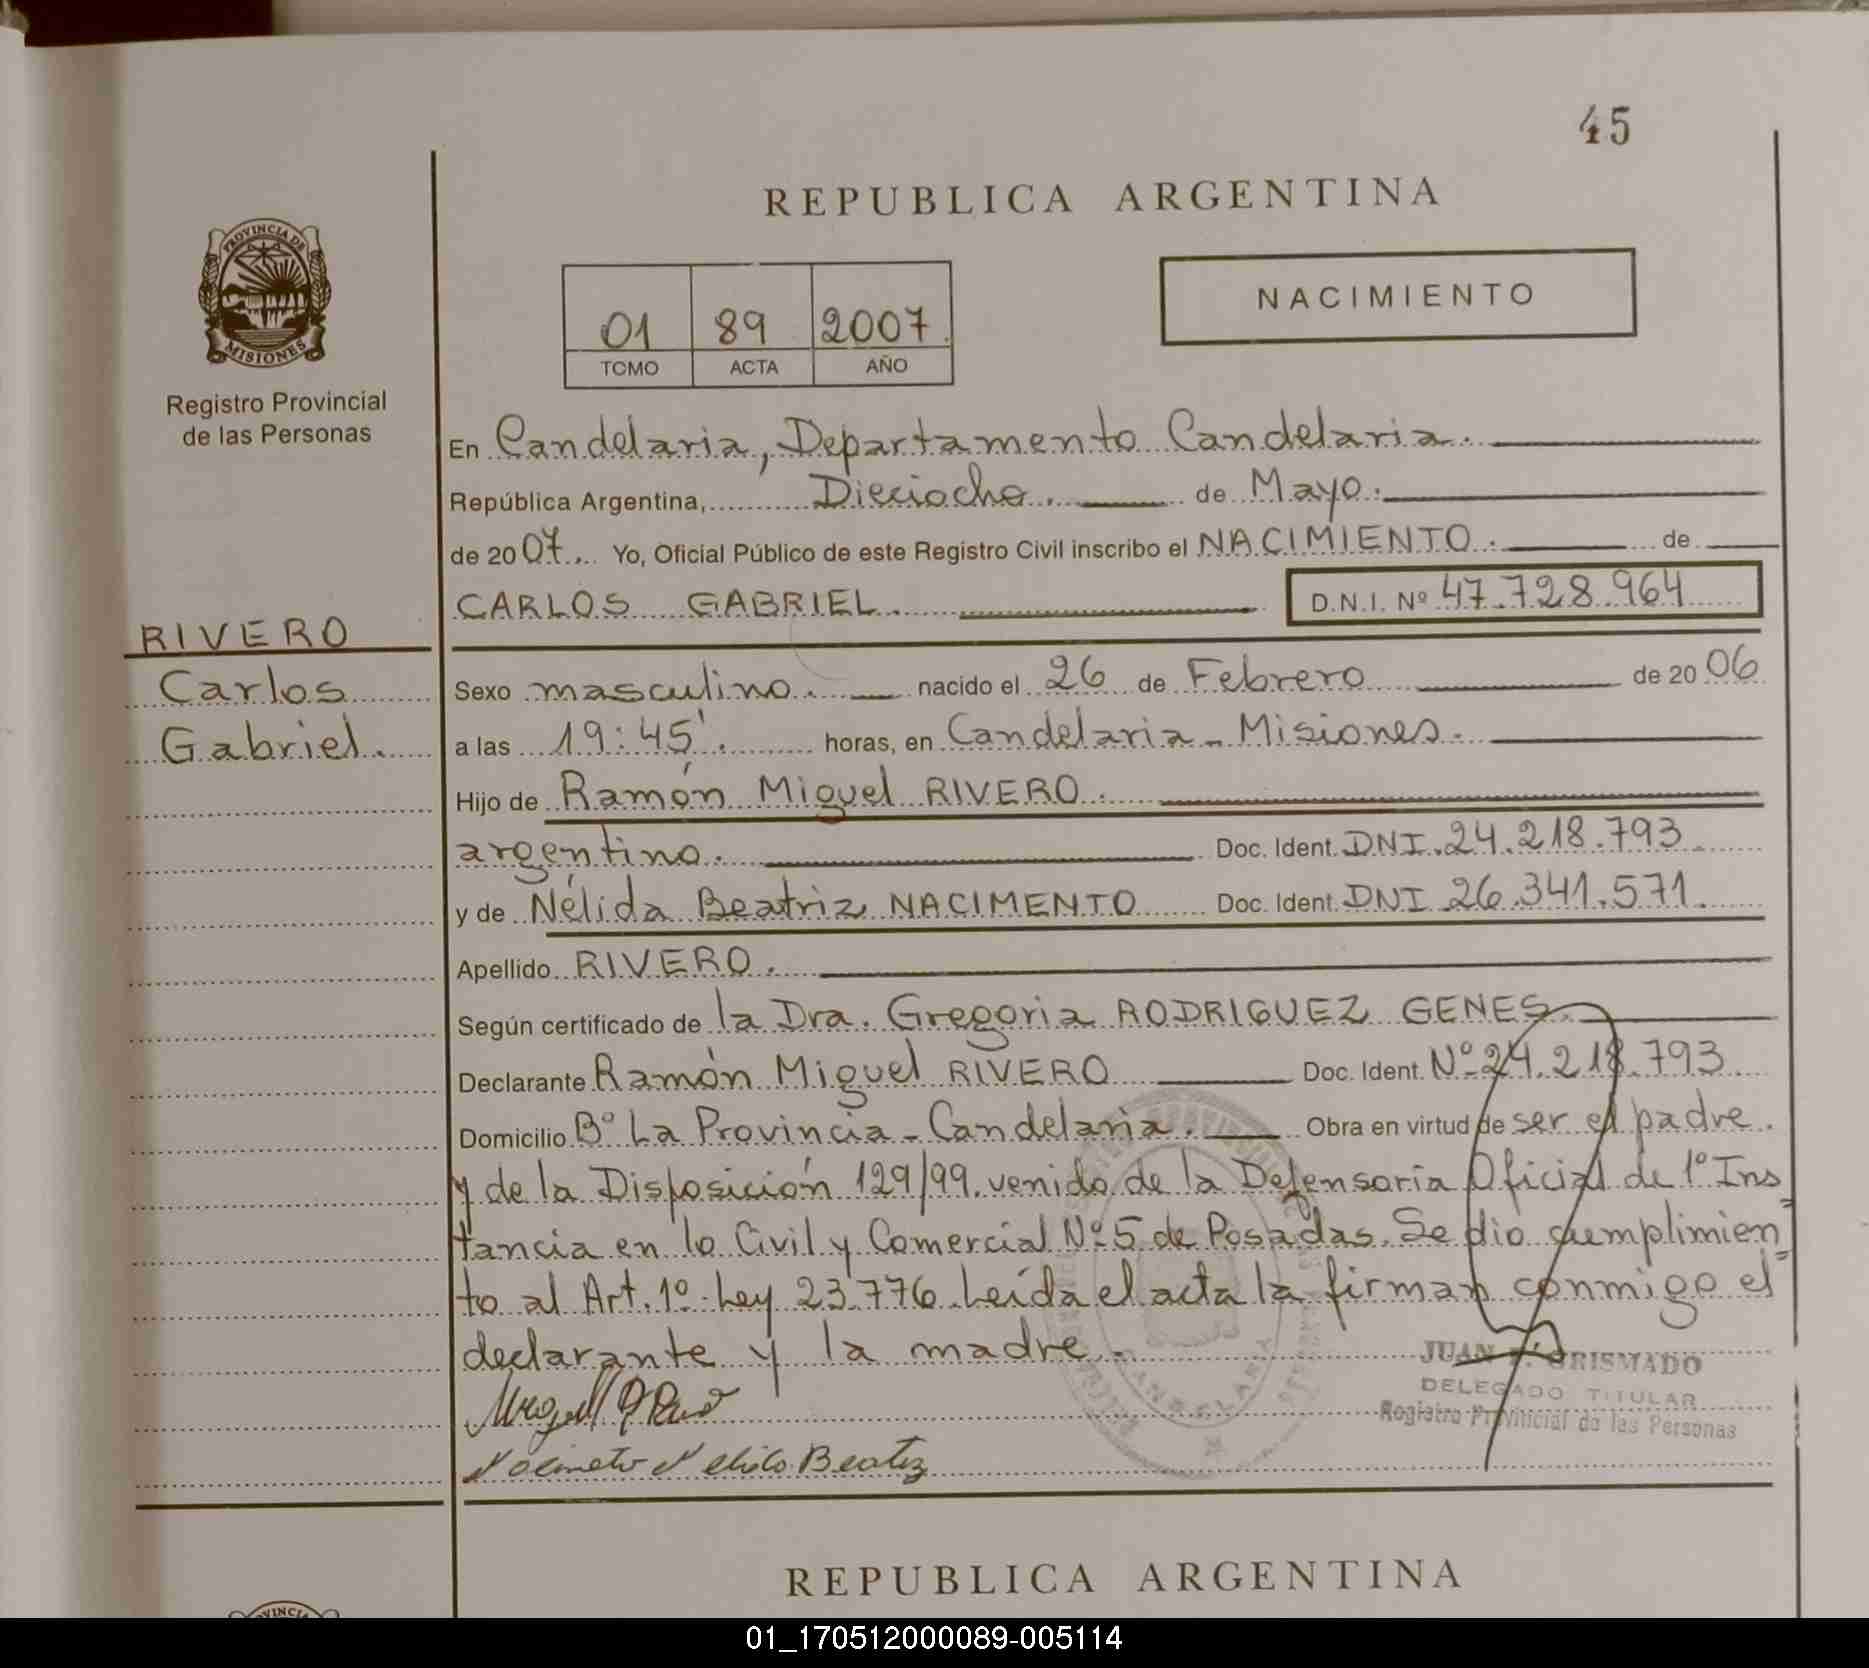 45
REPUBLICA ARGENTINA
PROVINCIA DE
MISIONES
Registro Provincial
de las Personas
01 89 2007
TOMO ACTA AÑO
NACIMIENTO
En Candelaria, Departamento Candelaria.
República Argentina, Dieciocho. de Mayo.
de 2007. Yo, Oficial Público de este Registro Civil inscribo el NACIMIENTO. de
CARLOS GABRIEL. D.N.I. Nº 47.728.964
RIVERO
Carlos
Gabriel.
Sexo masculino. nacido el 26 de Febrero de 2006
a las 19:45'. horas, en Candelaria - Misiones.
Hijo de Ramón Miguel RIVERO.
argentino. Doc. Ident. DNI.24.218.793
y de Nélida Beatriz NACIMENTO Doc. Ident. DNI 26.341.571.
Apellido RIVERO.
Según certificado de la Dra. Gregoria RODRIGUEZ GENES.
Declarante Ramón Miguel RIVERO Doc. Ident. Nº 24.218.793
Domicilio Bº La Provincia - Candelaria. Obra en virtud de ser el padre.
y de la Disposición 129/99. venido de la Defensoría Oficial de 1º Ins
tancia en lo Civil y Comercial Nº 5 de Posadas. Se dio cumplimien=
to al Art. 1º. Ley 23.776. Leída el acta la firman conmigo el
declarante y la madre.
JUAN GRISMADO
DELEGADO TITULAR
Registro Provincial de las Personas
CANDELARIA
Beatriz
REPUBLICA ARGENTINA
01_170512000089-005114